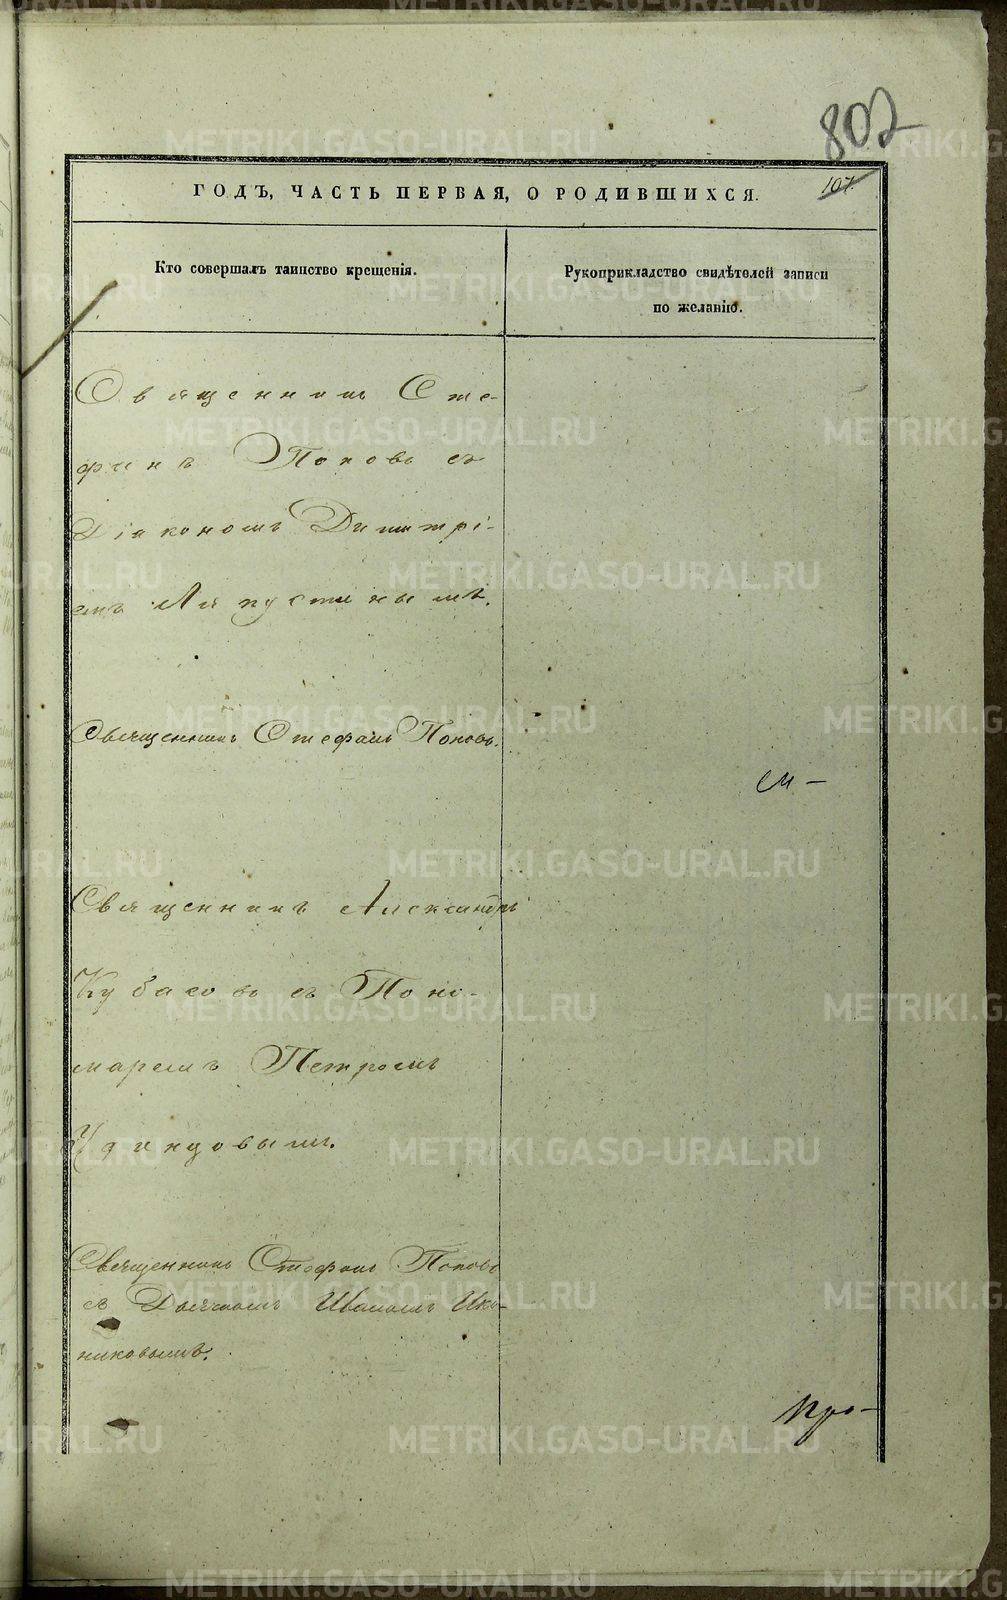 802
107.
ГОДЪ, ЧАСТЬ ПЕРВАЯ, О РОДИВШИХСЯ.
Кто совершалъ таинство крещенія.
Рукоприкладство свидѣтелей записи
по желанію.
Священникъ Сте-
фанъ Поповъ съ
Діакономъ Димитрі-
емъ Ляпустинымъ.
Священникъ Стефанъ Поповъ.
см-
Священникъ Александръ
Кубасовъ съ Поно-
маремъ Петромъ
Удинцовымъ.
Священникъ Стефанъ Поповъ
съ Дьячкомъ Иваномъ Ико-
никовымъ.
про-
METRIKI.GASO-URAL.RU